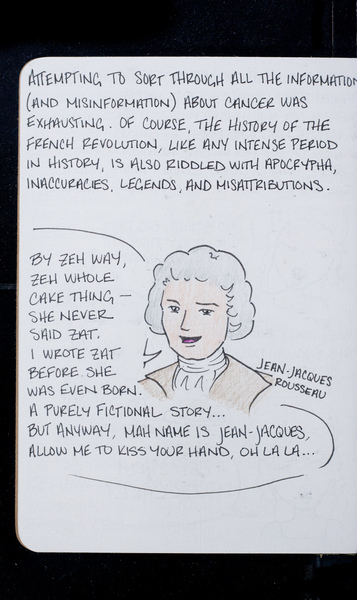 ATTEMPTING TO SORT THROUGH ALL THE INFORMATION
(AND MISINFORMATION) ABOUT CANCER WAS
EXHAUSTING. OF COURSE, THE HISTORY OF THE
FRENCH REVOLUTION, LIKE ANY INTENSE PERIOD
IN HISTORY, IS ALSO RIDDLED WITH APOCRYPHA,
INACCURACIES, LEGENDS, AND MISATTRIBUTIONS.
BY ZEH WAY,
ZEH WHOLE
CAKE THING —
SHE NEVER
SAID ZAT.
I WROTE ZAT
BEFORE SHE
WAS EVEN BORN.
A PURELY FICTIONAL STORY...
BUT ANYWAY, MAH NAME IS JEAN-JACQUES,
ALLOW ME TO KISS YOUR HAND, OH LA LA...
JEAN-JACQUES
ROUSSEAU